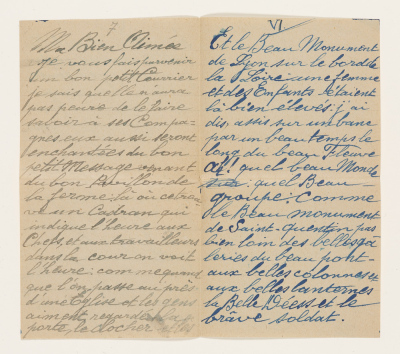 7
Ma Bien Aimée
je vous fais parvenir
un bon petit Courrier
je sais quelle naura
pas peur de le faire
savoir à ses Compa-
gnes eux aussi seront
enchantées du bon
petit Message venant
du bon Pavillon de
la ferme: là où
un Cadran qui
indique l'heure aux
Chefs, et aux travailleurs
dans la cour on voit
l'heure: com me quand
que l'on passe au près
d'une Eglise et les gens
aiment regarder la
porte, le clocher
VI
Et le Beau Monument
de Lyon sur le bord de
la Loire: une femme
et des Enfants étaient
là bien élevés: j'ai
dis, assis sur un banc
par un beau temps le
long du beau Fleuve
Ah! quel beau
quel Beau
groupe: Comme
le Beau monument
de Saint-quentin pas
bien loin des belles ga
leries du beau pont-
aux belles colonnes et
aux belles lanternes
la Belle Déess et le
brâve soldat.